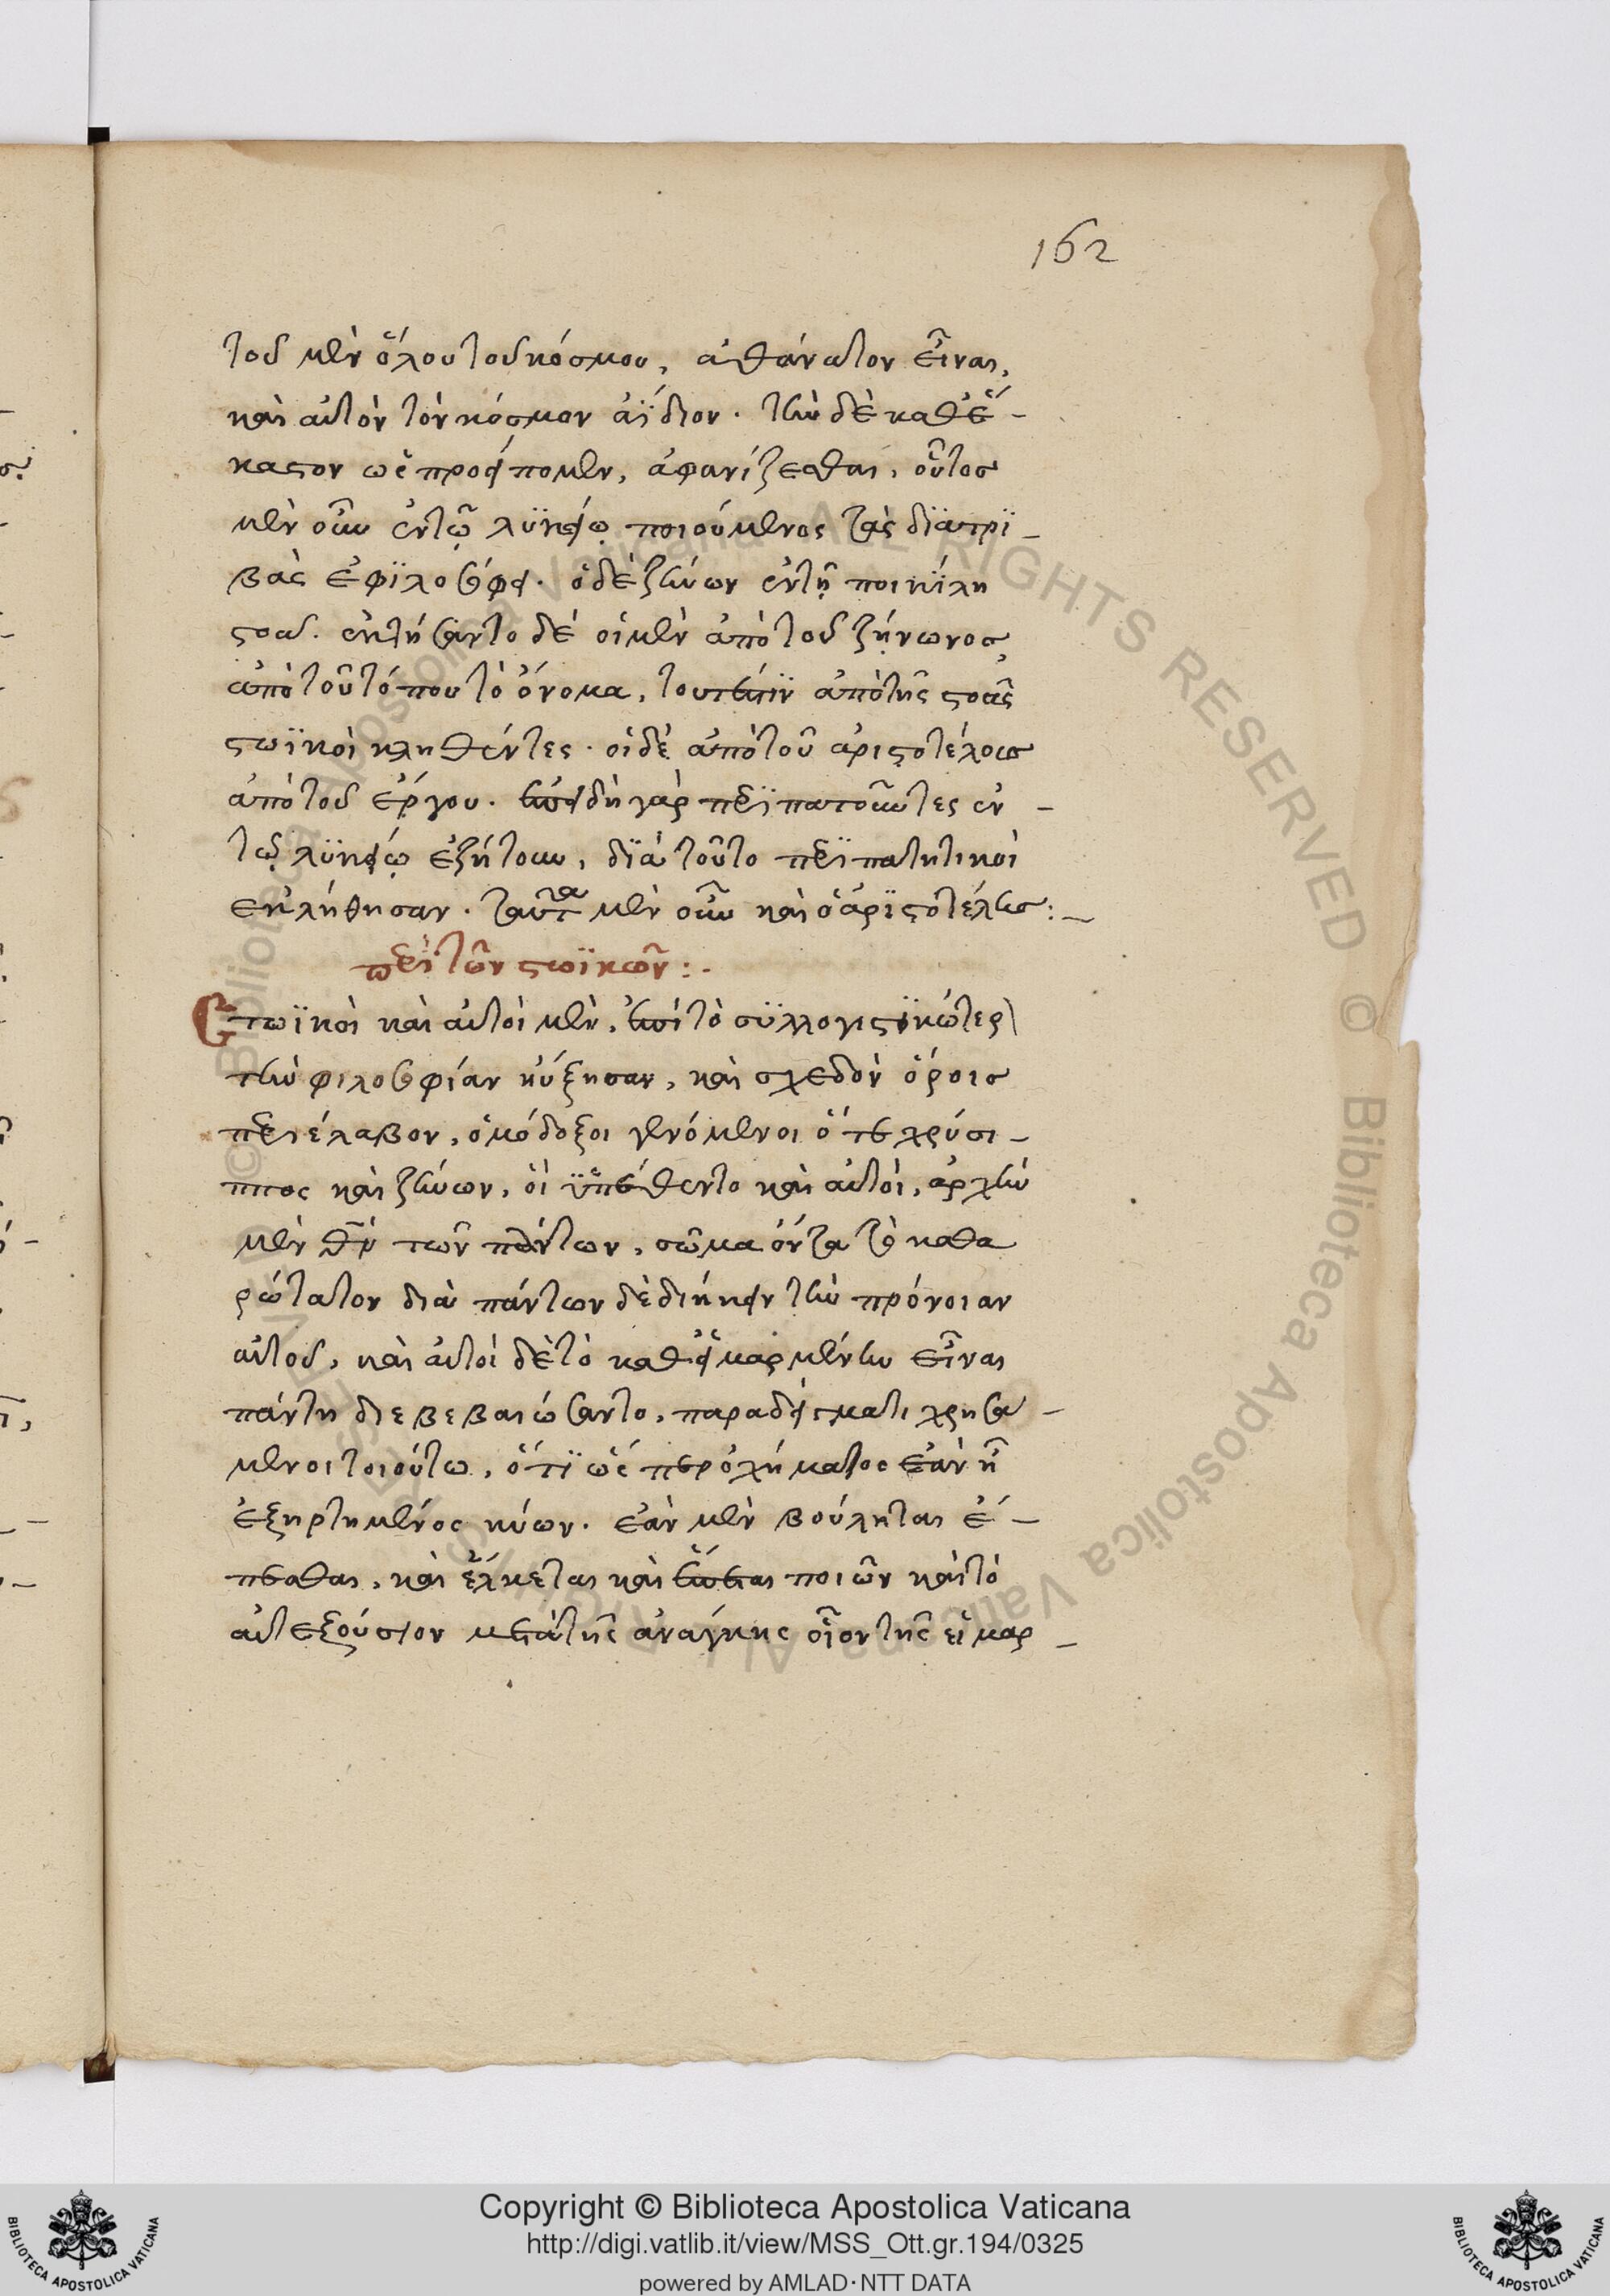 162
τοῦ μὲν ὅλου τοῦ κόσμου, ἀθάνατον εἶναι,
καὶ αὐτὸν τὸν κόσμον ἀΐδιον. τὴν δὲ καθ' ἕ-
καστον ὡς προείπομεν, ἀφανίζεσθαι, οὗτος
μὲν οὖν ἐν τῷ λυκείῳ ποιούμενος τὰς διατρι-
βὰς ἐφιλοσόφει. ὁ δὲ ζήνων ἐν τῇ ποικίλη
στοᾶ. ἐκτήσαντο δὲ οἱ μὲν ἀπὸ τοῦ ζήνωνος
ἀπὸ τοῦ τόπου τὸ ὄνομα, τουτέστιν ἀπὸ τῆς στοᾶς
στωϊκοὶ κληθέντες. οἱ δὲ ἀπὸ τοῦ ἀριστοτέλους
ἀπὸ τοῦ ἔργου. ἐπειδὴ γὰρ περιπατοῦντες ἐν -
τῷ λυκείῳ ἐζήτουν, διὰ τοῦτο περιπατητικοὶ
ἐκλήθησαν. ταῦτα μὲν οὖν καὶ ὁ ἀριστοτέλης:-
περὶ τῶν στωϊκῶν:.
Στωϊκοὶ καὶ αὐτοὶ μὲν, ἐπὶ τὸ συλλογιστικώτερ)
τὴν φιλοσοφίαν ηὔξησαν, καὶ σχεδὸν ὅροις
περιέλαβον, ὁμόδοξοι γενόμενοι ὅ τε χρύσι-
ππος καὶ ζήνων, οἳ ὑπέθεντο καὶ αὐτοὶ, ἀρχὴν
μὲν θν τῶν πάντων, σῶμα ὄντα τὸ καθα
ρώτατον διὰ πάντων δὲ διήκειν τὴν πρόνοιαν
αὐτοῦ, καὶ αὐτοὶ δὲ τὸ καθ' εἱμαρμένην εἶναι
πάντη διεβεβαιώσαντο, παραδείγματι χρησά-
μενοι τοιούτω, ὅτι ὥσπερ ὀχήματος ἐὰν ᾖ
ἐξηρτημένος κύων. ἐὰν μὲν βούληται ἕ-
πεσθαι, καὶ ἕλκεται καὶ ἕπεται ποιῶν καὶ τὸ
αὐτεξούσιον μετὰ τῆς ἀνάγκης οἷον τῆς εἱμαρ-
Copyright © Biblioteca Apostolica Vaticana
http://digi.vatlib.it/view/MSS_Ott.gr.194/0325
powered by AMLAD·NTT DATA